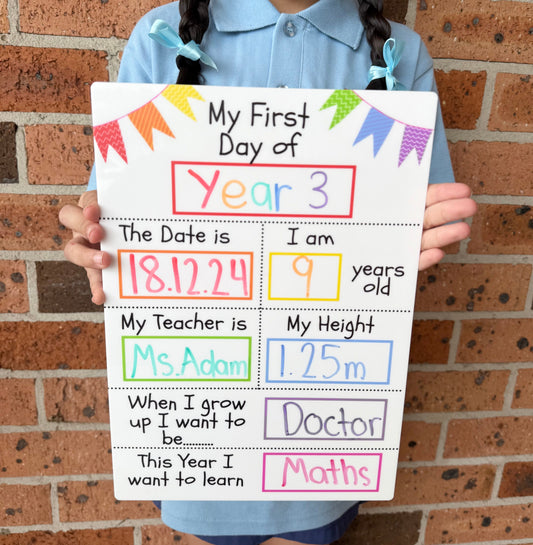 My First
Day of
Year 3
The Date is
18.12.24
I am
9 years
old
My Teacher is
Ms.Adam
My Height
1.25m
When I grow
up I want to
be..........
Doctor
This Year I
want to learn
Maths